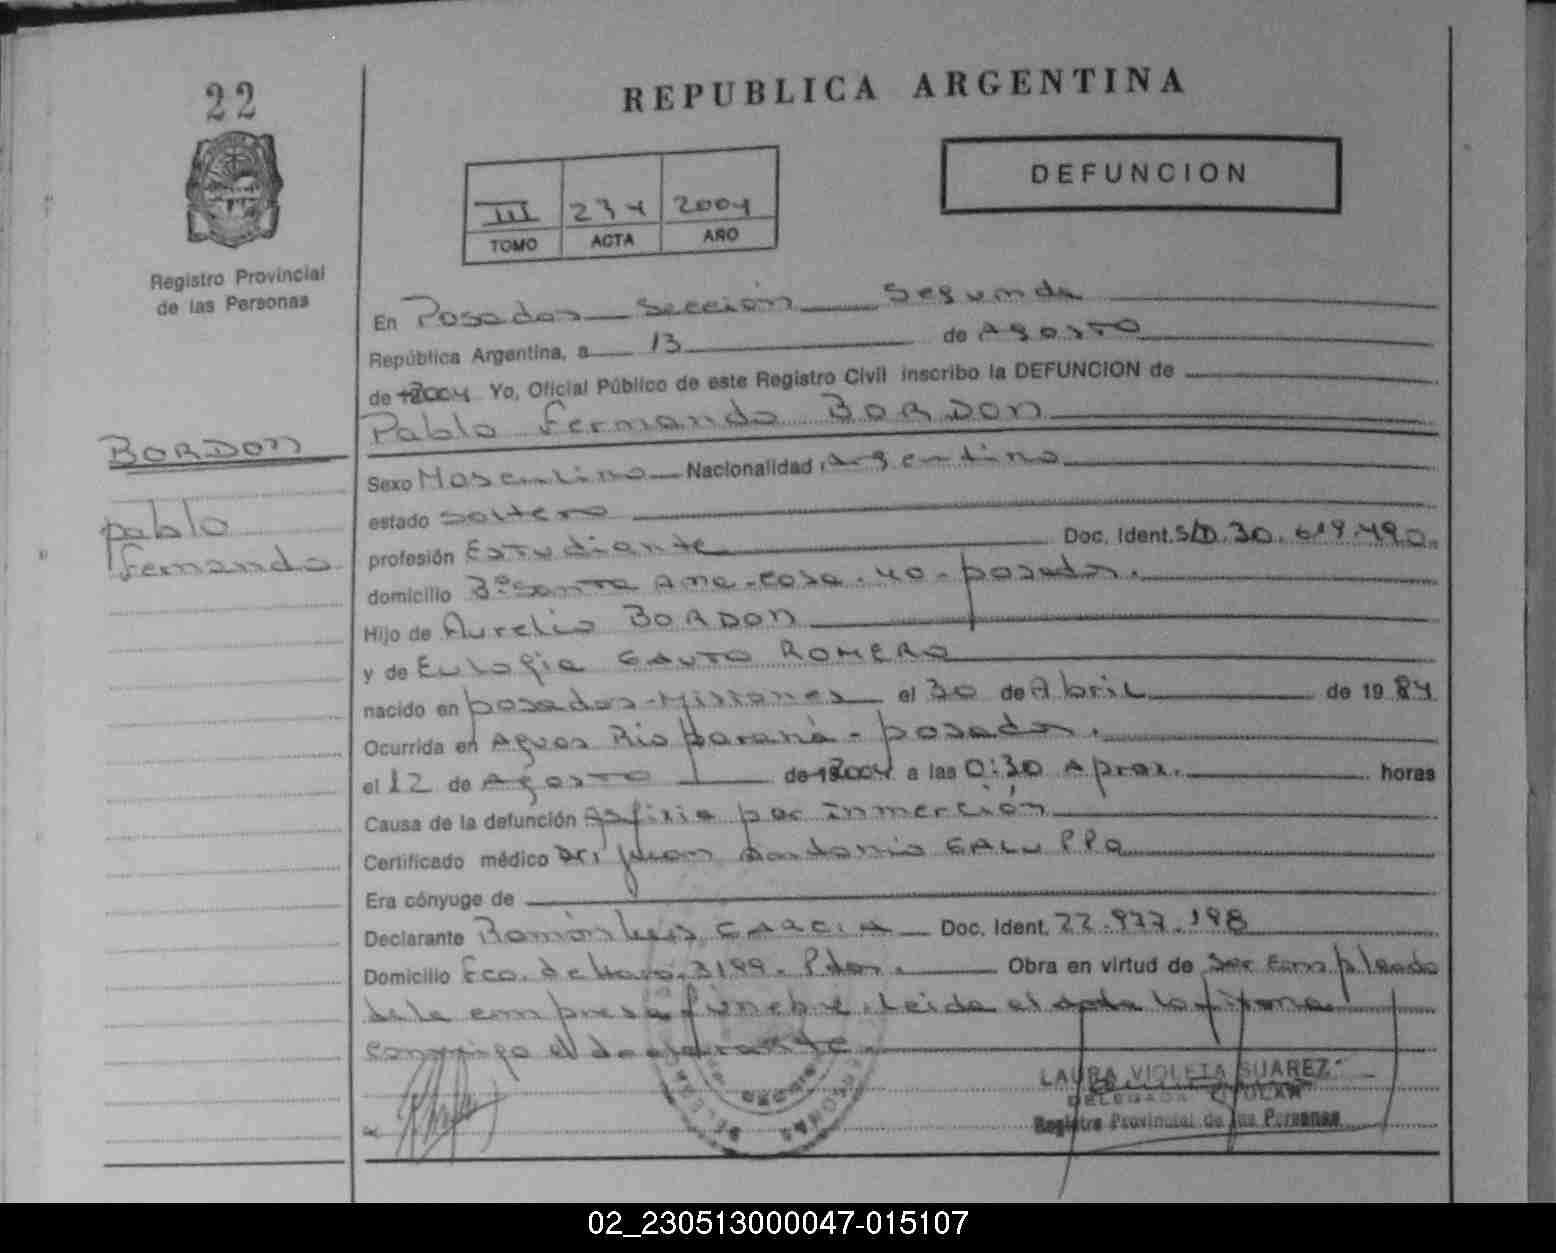 22
REPUBLICA ARGENTINA
DEFUNCION
III 234 2004
TOMO ACTA AÑO
Registro Provincial
de las Personas
En Posadas Sección Segunda
República Argentina, a 13 de Agosto
de 2004 Yo, Oficial Público de este Registro Civil inscribo la DEFUNCION de
Pablo Fernando BORDON
BORDON
pablo
Fernando
Sexo Masculino Nacionalidad Argentino
estado soltero
profesión Estudiante Doc. Ident. S/D. 30.619.490
domicilio Bº Santa Ana - casa - 40 - posadas.
Hijo de Aurelio BORDON
y de Eulogia GAUTO ROMERO
nacido en posadas - Misiones el 30 de Abril de 1984
Ocurrida en Aguas Rio paraná - posadas.
el 12 de Agosto de 2004 a las 0:30 Aprox. horas
Causa de la defunción Asfixia por inmerción
Certificado médico Dr. Juan Antonio
Era cónyuge de
Declarante Ramón Luis GARCIA Doc. Ident. 22.937.198
Domicilio Fco. de Haro. 3199. Pdas. Obra en virtud de ser Empleado
de la empresa fúnebre. Leida el acta la firma
conmigo el declarante.
LAURA VIOLETA SUAREZ
DELEGADA TITULAR
Registro Provincial de las Personas
02_230513000047-015107